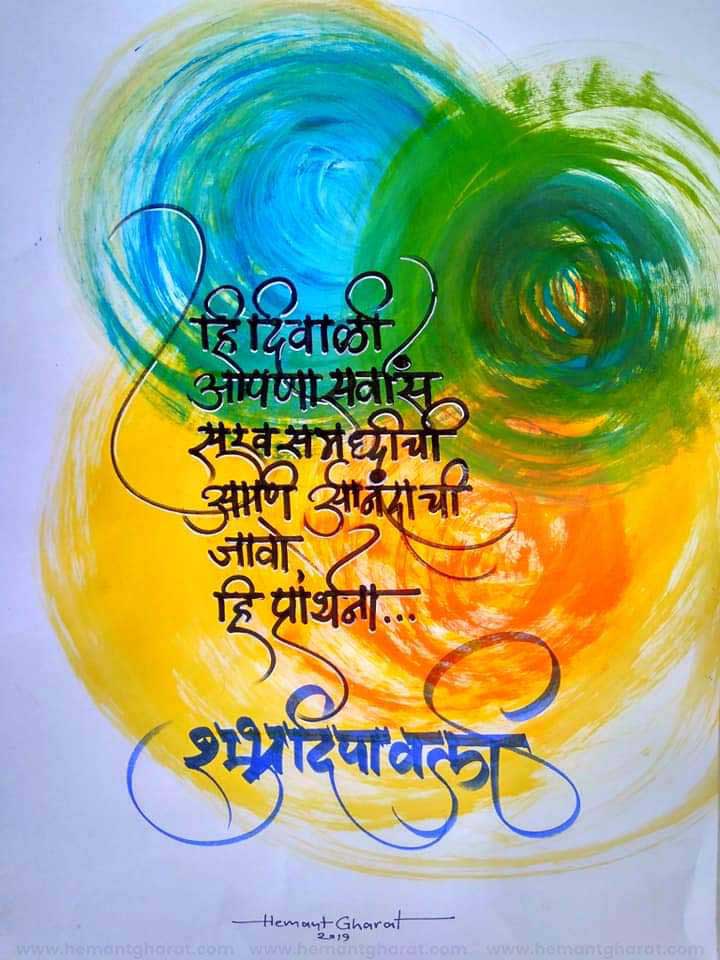 हि दिवाळी
आपणा सर्वांस
सुख समृध्दीची
आणि आनंदाची
जावो,
हि प्रार्थना...
शुभ दिपावली
Hemant Gharat
2019
www.hemantgharat.com www.hemantgharat.com www.hemantgharat.com